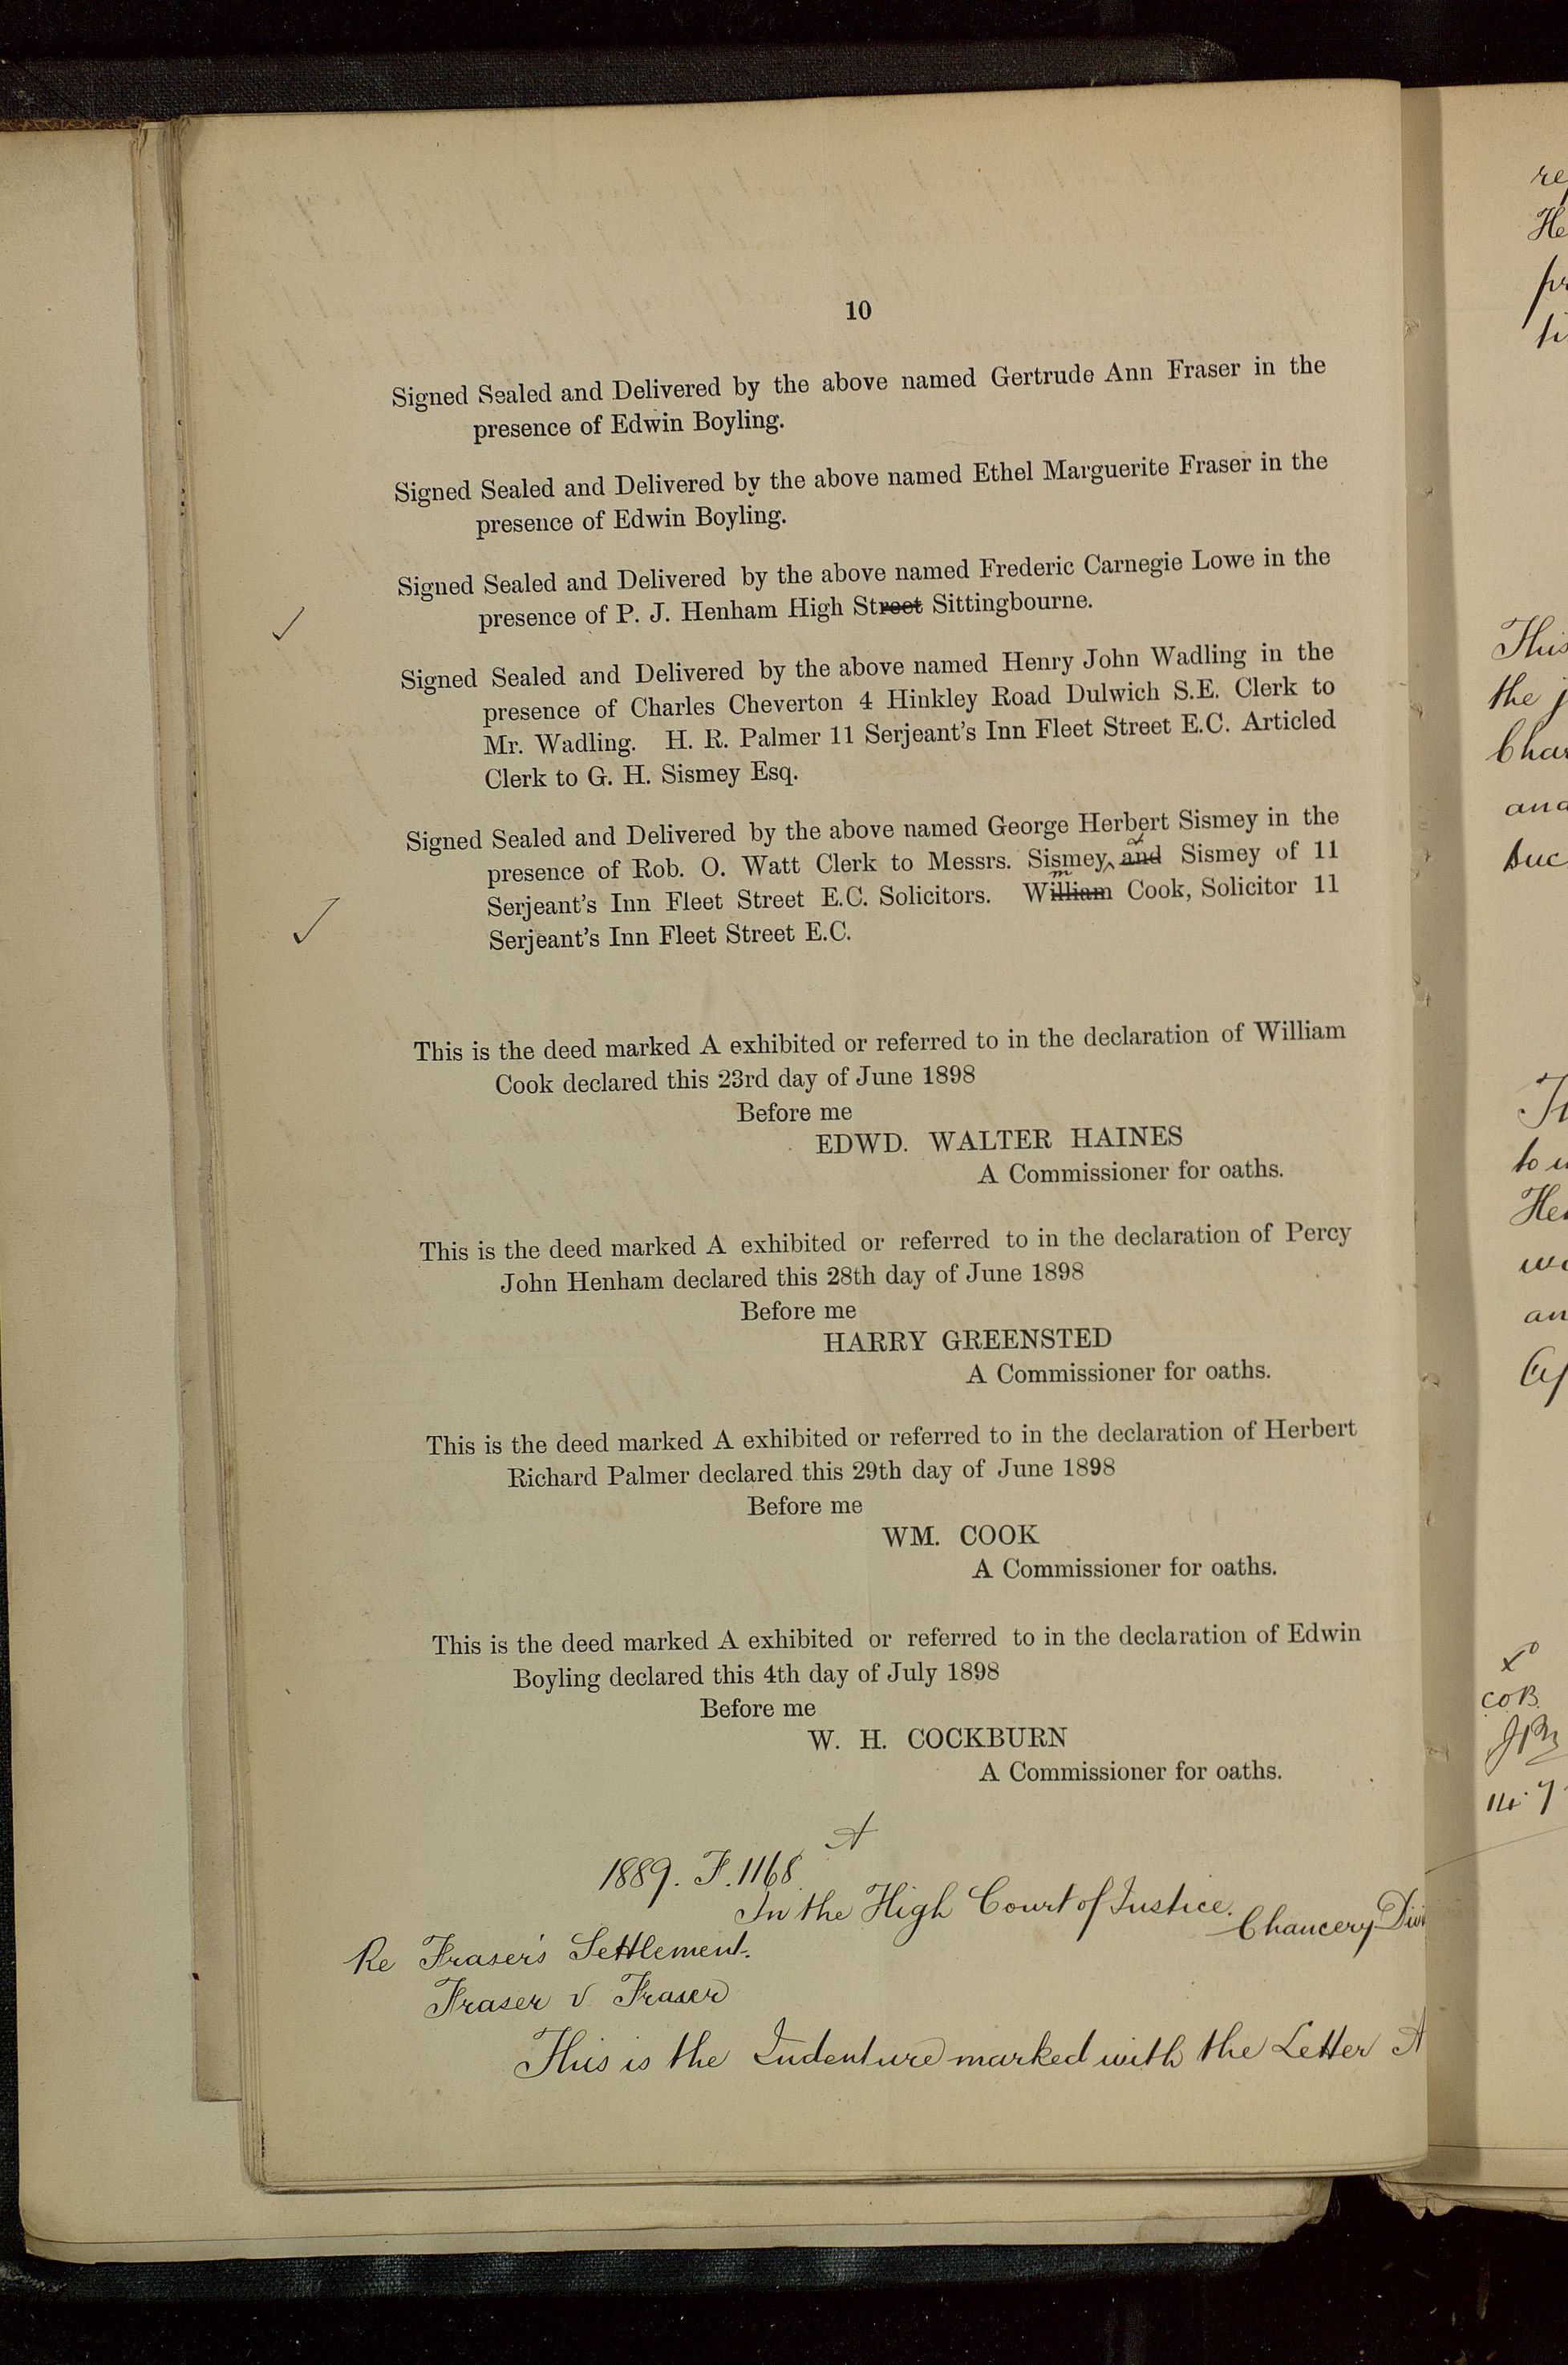 10
Signed Sealed and Delivered by the above named Gertrude Ann Fraser in the
presence of Edwin Boyling.
Signed Sealed and Delivered by the above named Ethel Marguerite Fraser in the
presence of Edwin Boyling.
Signed Sealed and Delivered by the above named Frederic Carnegie Lowe in the
presence of P. J. Henham High Street Sittingbourne.
Signed Sealed and Delivered by the above named Henry John Wadling in the
presence of Charles Cheverton 4 Hinkley Road Dulwich S.E. Clerk to
Mr. Wadling. H. R. Palmer 11 Serjeant's Inn Fleet Street E.C. Articled
Clerk to G. H. Sismey Esq.
Signed Sealed and Delivered by the above named George Herbert Sismey in the
presence of Rob. O. Watt Clerk to Messrs. Sismey & and Sismey of 11
Serjeant's Inn Fleet Street E.C. Solicitors. William m Cook, Solicitor 11
Serjeant's Inn Fleet Street E.C.
This is the deed marked A exhibited or referred to in the declaration of William
Cook declared this 23rd day of June 1898
Before me
EDWD. WALTER HAINES
A Commissioner for oaths.
This is the deed marked A exhibited or referred to in the declaration of Percy
John Henham declared this 28th day of June 1898
Before me
HARRY GREENSTED
A Commissioner for oaths.
This is the deed marked A exhibited or referred to in the declaration of Herbert
Richard Palmer declared this 29th day of June 1898
Before me
WM. COOK
A Commissioner for oaths.
This is the deed marked A exhibited or referred to in the declaration of Edwin
Boyling declared this 4th day of July 1898
Before me
W. H. COCKBURN
A Commissioner for oaths.
A
1889. F. 1168
In the High Court of Justice.
Chancery Divi
Re Fraser's Settlement.
Fraser v Fraser
This is the Indenture marked with the Letter A
This
the
and